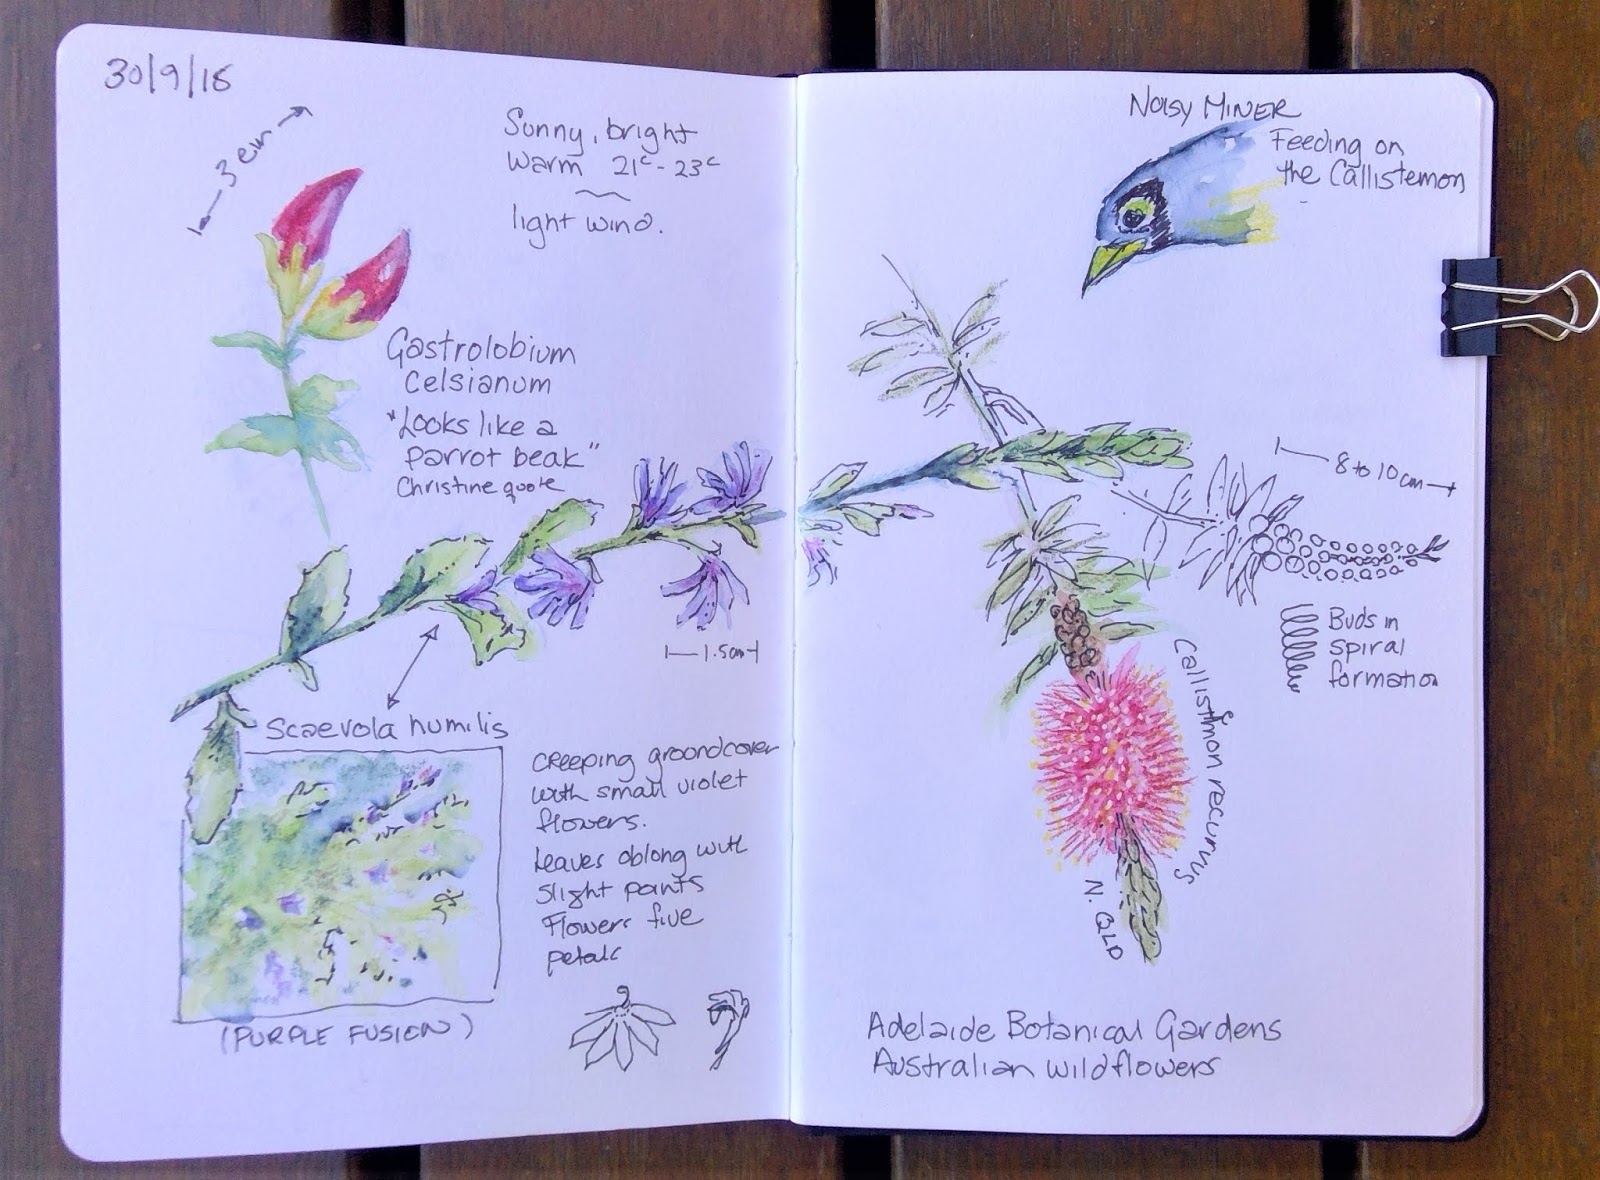 30/9/18
3 cm
Sunny, bright
warm 21c - 23c
light wind.
Gastrolobium
Celsianum
"Looks like a
parrot beak"
Christine quote
1.5cm
Scaevola humilis
(PURPLE FUSION)
creeping groundcover
with small violet
flowers.
Leaves oblong with
slight points
Flowers five
petals
NOISY MINER
Feeding on
the Callistemon
8 to 10 cm
Buds in
spiral
formation
Callistemon recurvus
N. QLD
Adelaide Botanical Gardens
Australian wildflowers